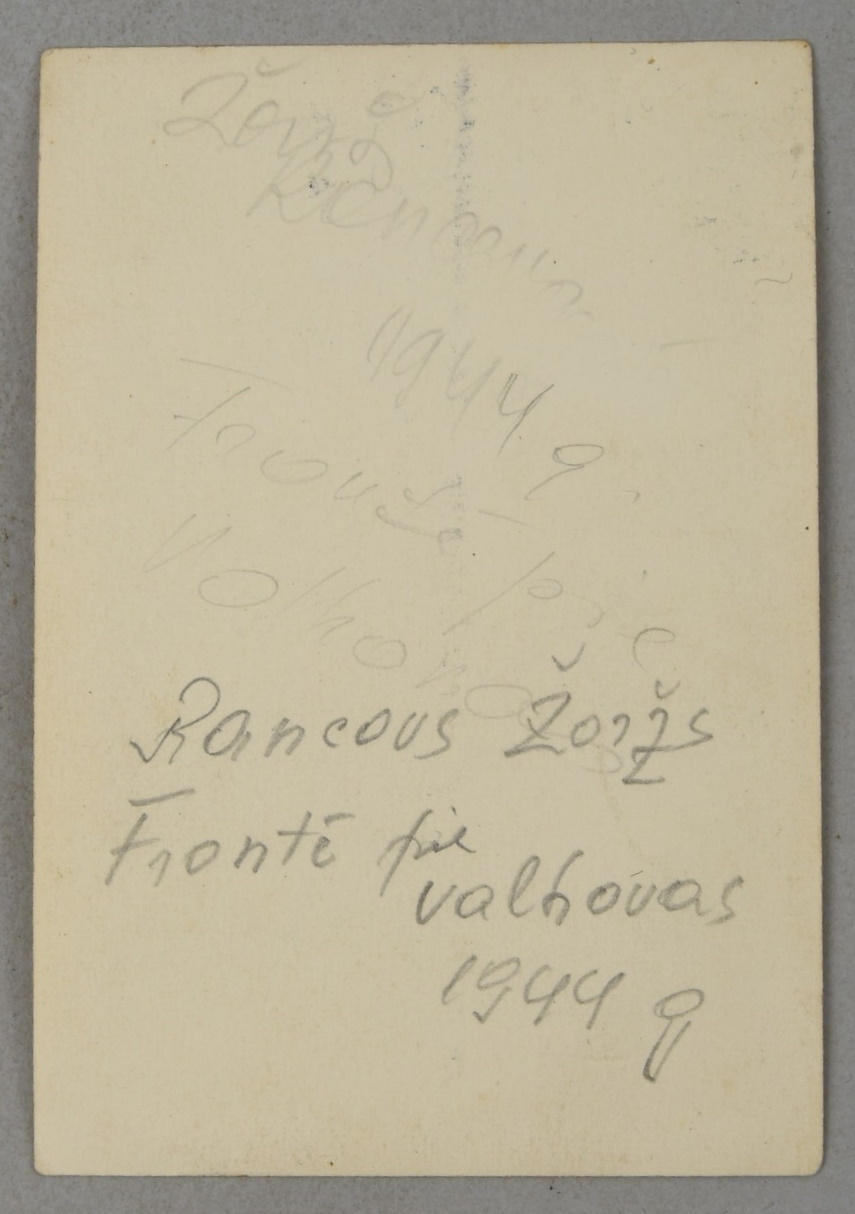 Žoržs
Rancovs
1944 g.
Frontē
pie
Volhovas
Rancovs Žoržs
Frontē pie
valhovas
1944 g